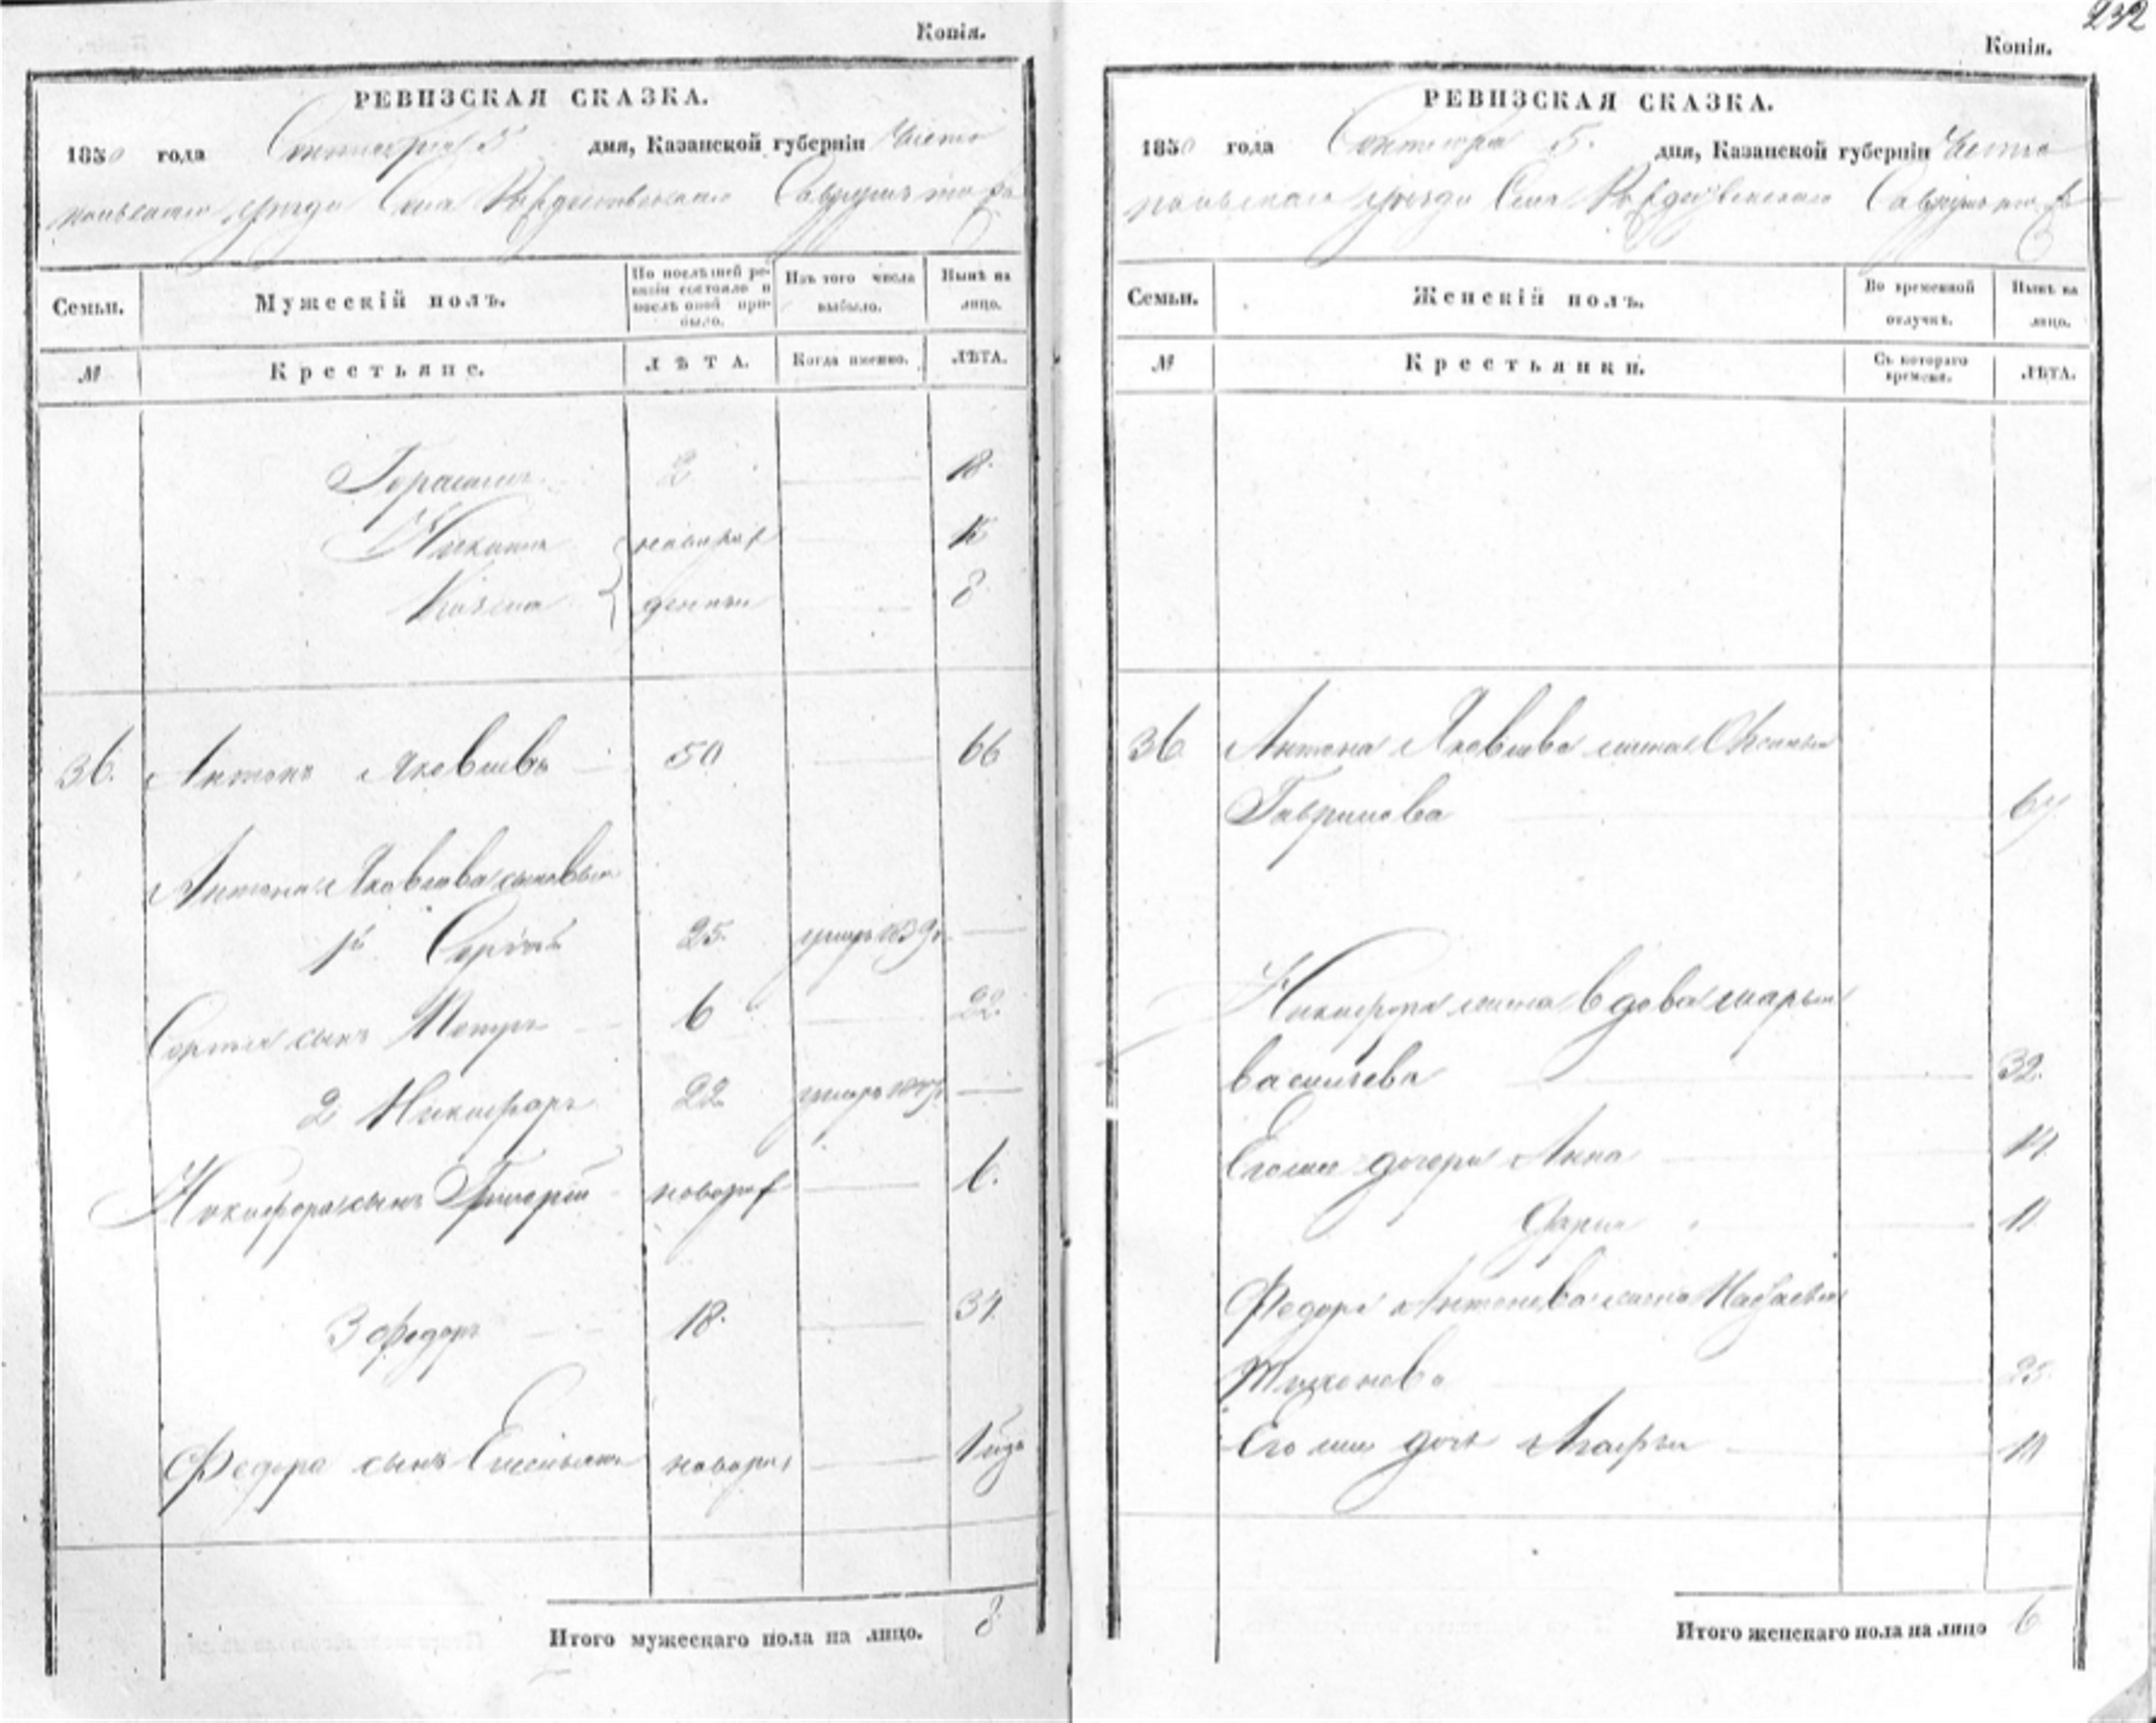 Копія.
РЕВИЗСКАЯ СКАЗКА.
1850 года Сентября 5 дня, Казанской губерніи Чисто
польскаго уезда Села Рождественскаго
Семьи. Мужескій полъ. По послѣдней ревизіи состояло и послѣ оной прибыло. Изъ того числа выбыло. Нынѣ на лицо.
№ Крестьяне. ЛѢТА. Когда именно. ЛѢТА.
Герасимъ 2 18
Никита новорож 15
Козьма денныи 8
36. Антонъ Яковлевъ 50 66
Антона Яковлева сыновья
1й Сергѣй 25. умеръ 1839г.
Сергея сынъ Петръ 6 22.
2 Никифоръ 22 умеръ
Никифора сынъ Григорій новорож 6.
3 Федоръ 18. 34
Федора сынъ Емельянъ новорож 1 годъ
Итого мужескаго пола на лицо. 8
232
Копія.
РЕВИЗСКАЯ СКАЗКА.
1850 года Сентября 5. дня, Казанской губерніи Чисто
польскаго уезда Села Рождественскаго
Семьи. Женскій полъ. Во временной отлучкѣ. Нынѣ на лицо.
№ Крестьянки. Съ котораго времени. ЛѢТА.
36 Антона Яковлева жена
Гаврилова
Никифора жена вдова Марья
Васильева 32.
Его же дочери Анна 14
Дарья 11
Федора Антонова жена
Тихонова 25.
Его же дочь Агафья 11
Итого женскаго пола на лицо 6